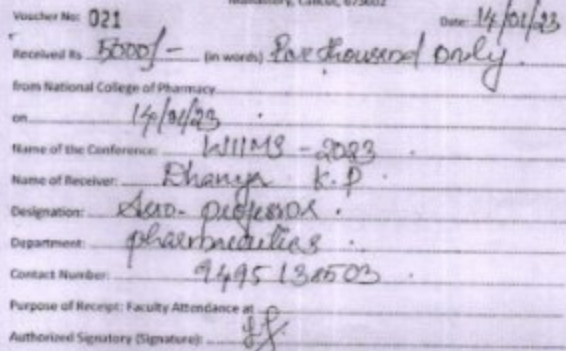 Manassery, Calicut, 673602
Voucher No: 021 Date: 14/01/23
Received Rs 5000/- (in words) Five thousand only.
from National College of Pharmacy
on 14/01/23
Name of the Conference:
Name of Receiver: Dhanya K.P
Designation: Asso. professor.
Department: pharmaceutics.
Contact Number:
Purpose of Receipt: Faculty Attendance at
Authorized Signatory (Signature):